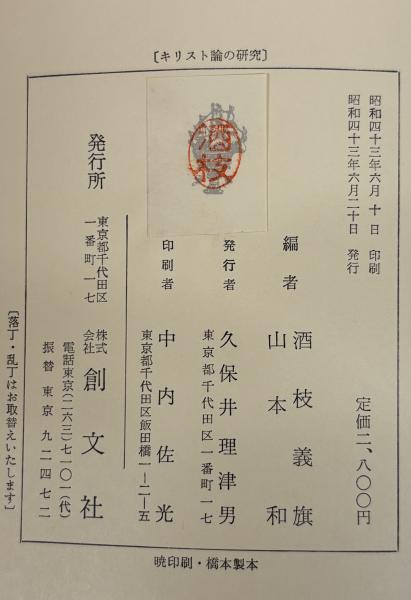 〔キリスト論の研究〕
昭和四十三年六月十日 印刷
昭和四十三年六月二十日 発行
定価二、八〇〇円
編者 酒枝義旗
山本和
発行者 久保井理津男
東京都千代田区一番町一七
印刷者 中内佐光
東京都千代田区飯田橋一ー二ー五
発行所
東京都千代田区
一番町一七
株式会社 創文社
電話東京(二六三)七一〇一(代)
振替東京九二四七二
酒枝
〔落丁・乱丁はお取替えいたします〕
暁印刷・橋本製本